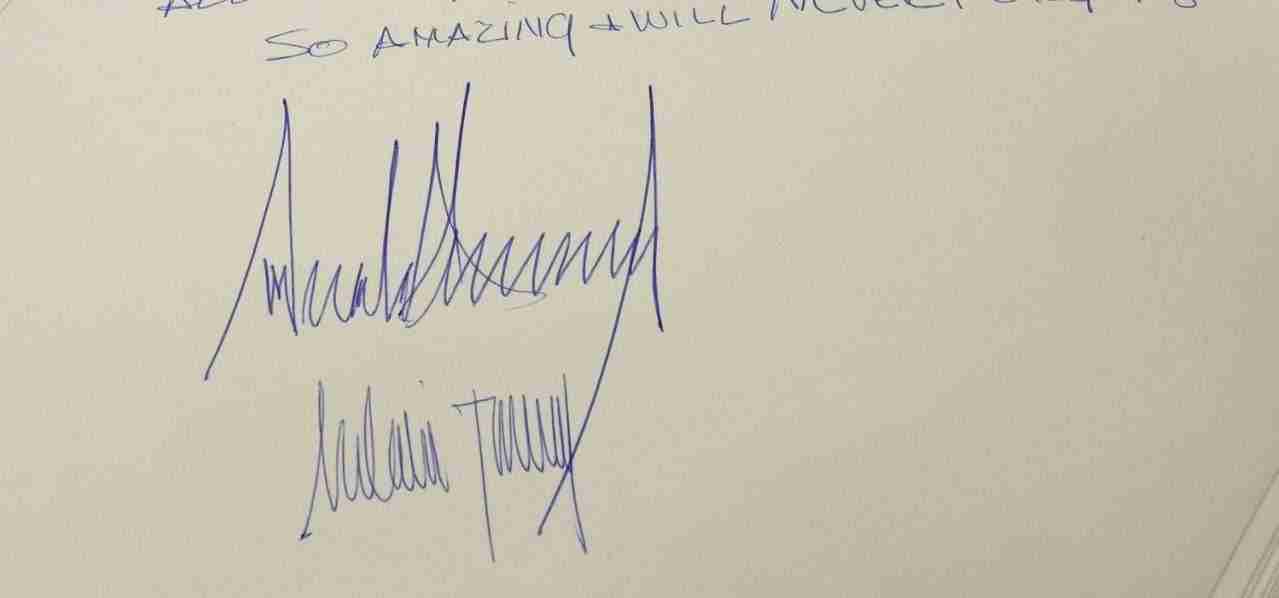 SO AMAZING + WILL NEVER FORGET!
Donald Trump
Melania Trump